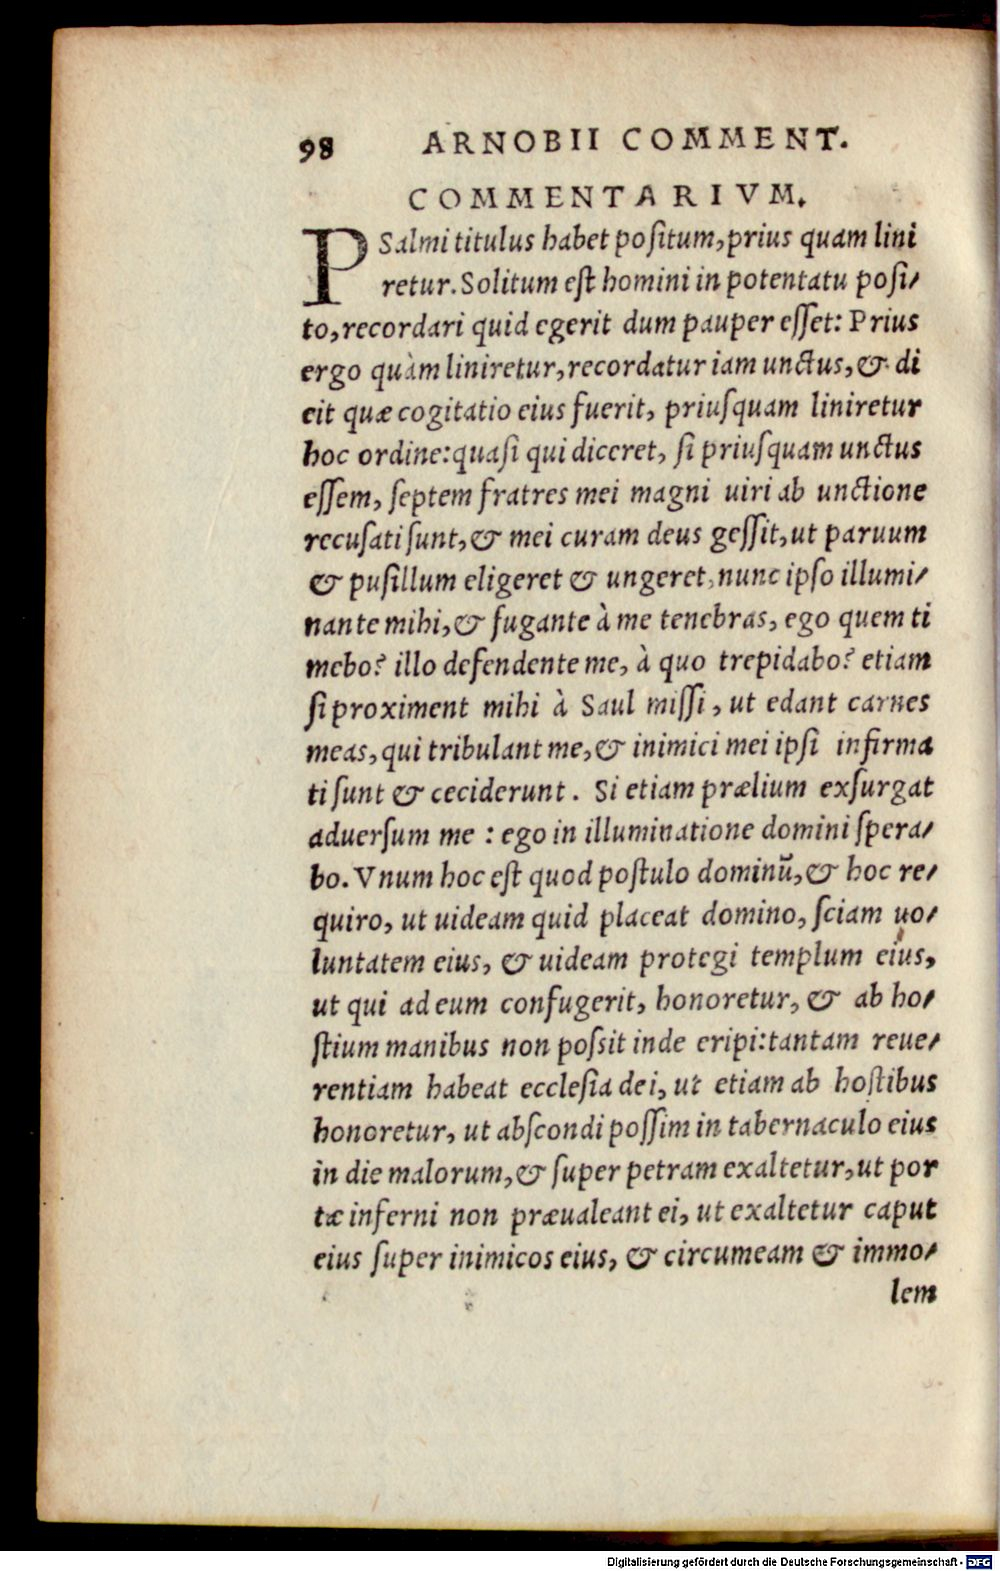 98 ARNOBII COMMENT.
COMMENTARIVM.
PSalmi titulus habet positum, prius quam lini
retur. Solitum est homini in potentatu posi/
to, recordari quid egerit dum pauper esset: Prius
ergo quàm liniretur, recordatur iam unctus, & di
cit quæ cogitatio eius fuerit, priusquam liniretur
hoc ordine: quasi qui diceret, si priusquam unctus
essem, septem fratres mei magni uiri ab unctione
recusati sunt, & mei curam deus gessit, ut paruum
& pusillum eligeret & ungeret, nunc ipso illumi/
nante mihi, & fugante à me tenebras, ego quem ti
mebo? illo defendente me, à quo trepidabo? etiam
si proximent mihi à Saul missi, ut edant carnes
meas, qui tribulant me, & inimici mei ipsi infirma
ti sunt & ceciderunt. Si etiam prælium exsurgat
aduersum me : ego in illuminatione domini spera/
bo. Vnum hoc est quod postulo dominū, & hoc re/
quiro, ut uideam quid placeat domino, sciam uo/
luntatem eius, & uideam protegi templum eius,
ut qui ad eum confugerit, honoretur, & ab ho/
stium manibus non possit inde eripi: tantam reue/
rentiam habeat ecclesia dei, ut etiam ab hostibus
honoretur, ut abscondi possim in tabernaculo eius
in die malorum, & super petram exaltetur, ut por
tæ inferni non præualeant ei, ut exaltetur caput
eius super inimicos eius, & circumeam & immo/
lem
Digitalisierung gefördert durch die Deutsche Forschungsgemeinschaft - DFG